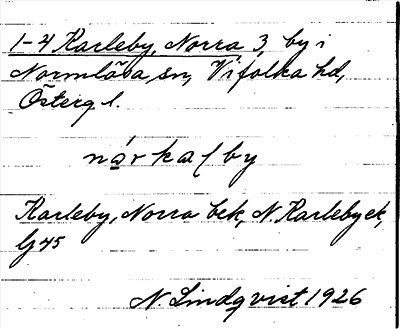 1-4 Karleby, Norra 3, by i
Normlösa sn, Vifolka hd,
Österg l.
nårkalby
Karleby, Norra bek, N. Karleby ek,
Gj 45
N. Lindqvist 1926